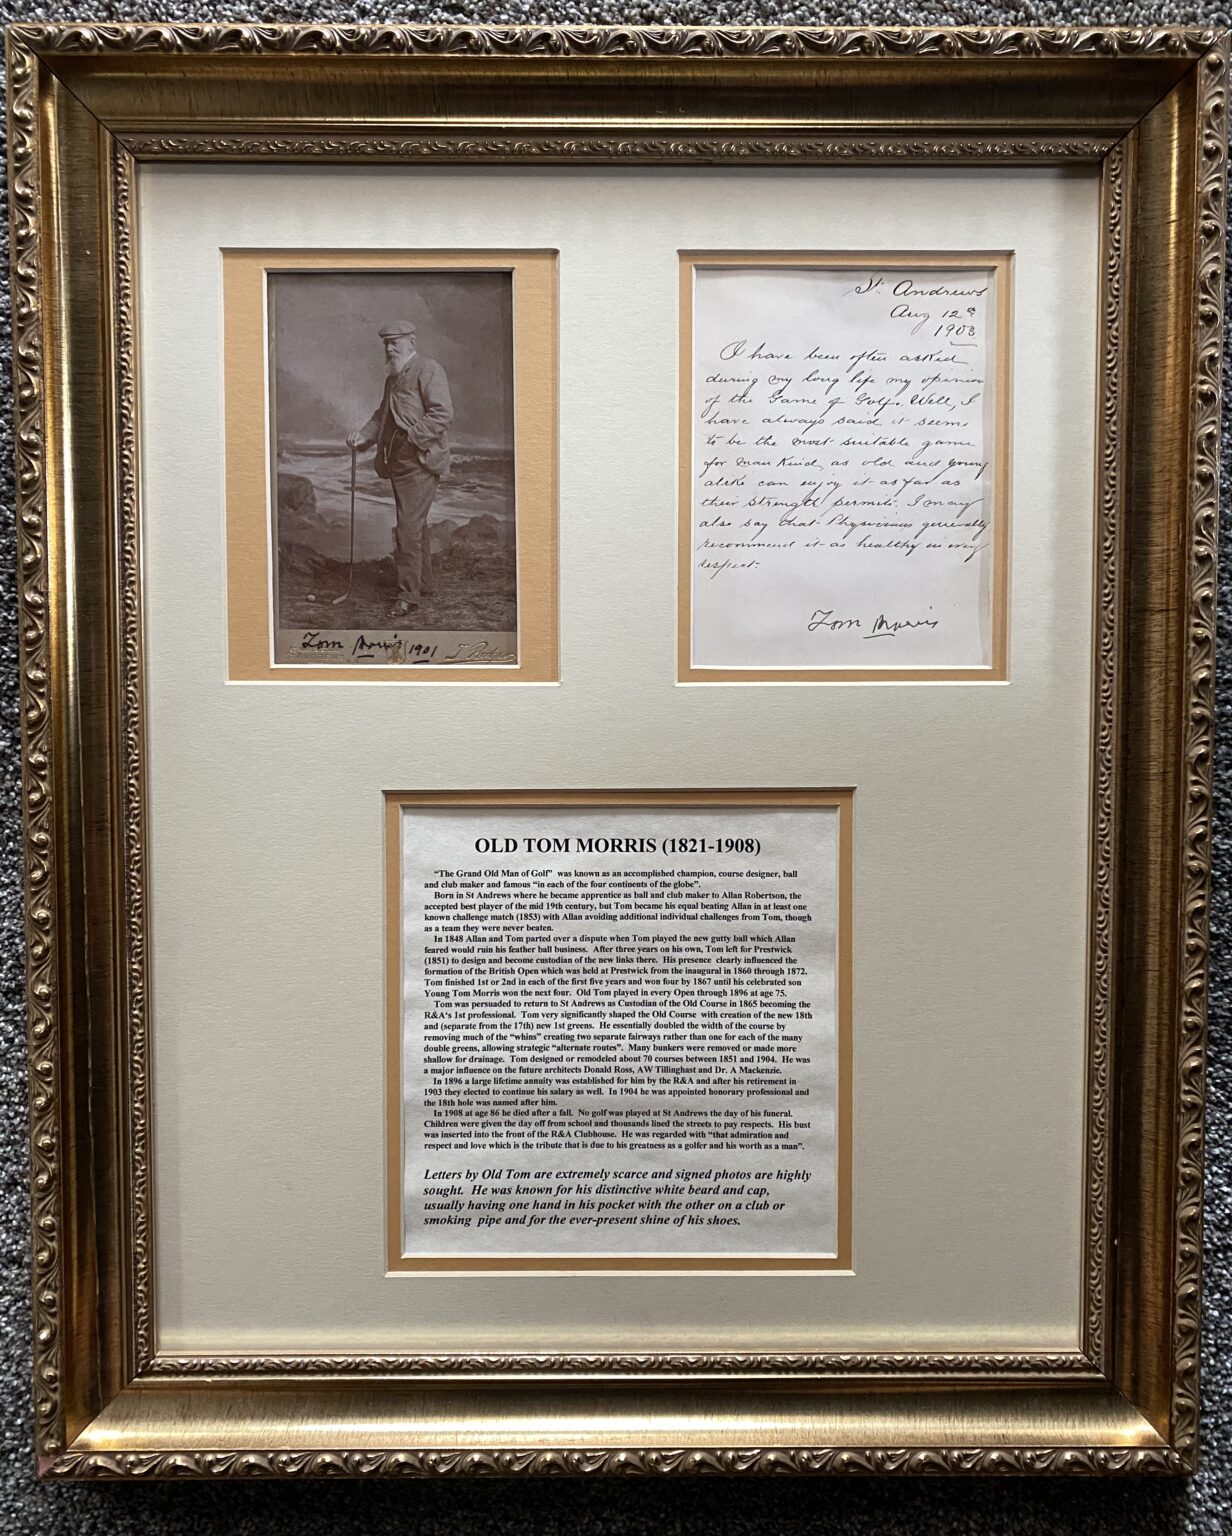 Tom Morris 1901
ANDREWS
St. Andrews
Aug 12th
1903
I have been often asked
during my long life my opinion
of the Game of Golf. Well, I
have always said it seems
to be the most suitable game
for Man Kind, as old and young
alike can enjoy it as far as
their strength permits. I may
also say that Physicians generally
recommend it as healthy in every
respect.
Tom Morris
OLD TOM MORRIS (1821-1908)
"The Grand Old Man of Golf" was known as an accomplished champion, course designer, ball
and club maker and famous "in each of the four continents of the globe".
Born in St Andrews where he became apprentice as ball and club maker to Allan Robertson, the
accepted best player of the mid 19th century, but Tom became his equal beating Allan in at least one
known challenge match (1853) with Allan avoiding additional individual challenges from Tom, though
as a team they were never beaten.
In 1848 Allan and Tom parted over a dispute when Tom played the new gutty ball which Allan
feared would ruin his feather ball business. After three years on his own, Tom left for Prestwick
(1851) to design and become custodian of the new links there. His presence clearly influenced the
formation of the British Open which was held at Prestwick from the inaugural in 1860 through 1872.
Tom finished 1st or 2nd in each of the first five years and won four by 1867 until his celebrated son
Young Tom Morris won the next four. Old Tom played in every Open through 1896 at age 75.
Tom was persuaded to return to St Andrews as Custodian of the Old Course in 1865 becoming the
R&A's 1st professional. Tom very significantly shaped the Old Course with creation of the new 18th
and (separate from the 17th) new 1st greens. He essentially doubled the width of the course by
removing much of the "whins" creating two separate fairways rather than one for each of the many
double greens, allowing strategic "alternate routes". Many bunkers were removed or made more
shallow for drainage. Tom designed or remodeled about 70 courses between 1851 and 1904. He was
a major influence on the future architects Donald Ross, AW Tillinghast and Dr. A Mackenzie.
In 1896 a large lifetime annuity was established for him by the R&A and after his retirement in
1903 they elected to continue his salary as well. In 1904 he was appointed honorary professional and
the 18th hole was named after him.
In 1908 at age 86 he died after a fall. No golf was played at St Andrews the day of his funeral.
Children were given the day off from school and thousands lined the streets to pay respects. His bust
was inserted into the front of the R&A Clubhouse. He was regarded with "that admiration and
respect and love which is the tribute that is due to his greatness as a golfer and his worth as a man".
Letters by Old Tom are extremely scarce and signed photos are highly
sought. He was known for his distinctive white beard and cap,
usually having one hand in his pocket with the other on a club or
smoking pipe and for the ever-present shine of his shoes.